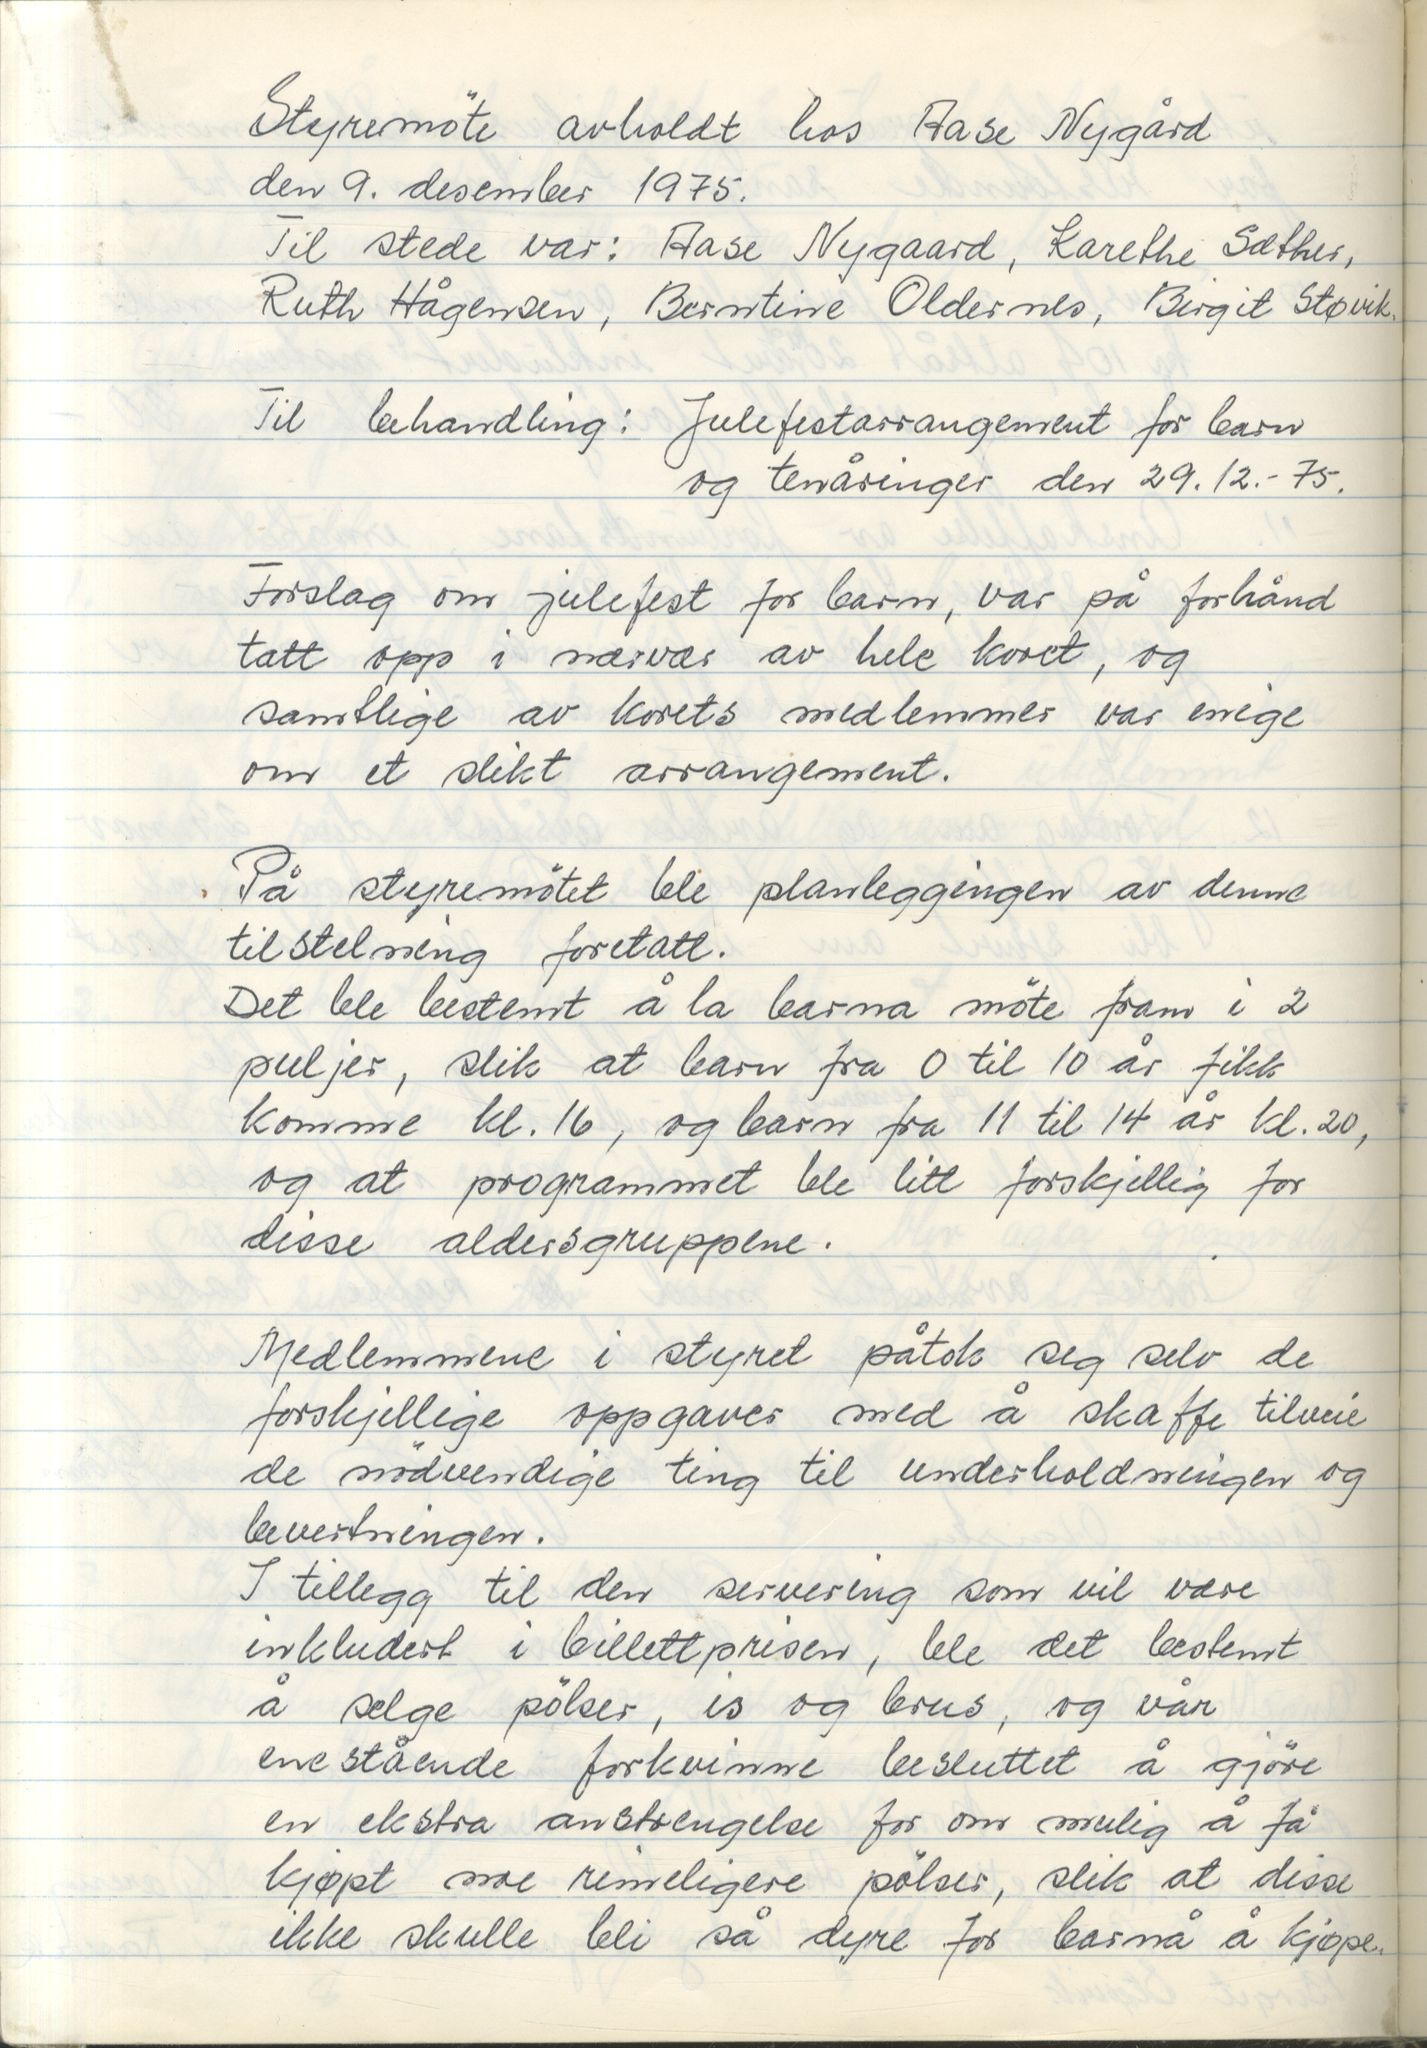 Styremöte avholdt hos Aase Nygård
den 9. desember 1975.
Til stede var: Aase Nygaard, Karethe Sæther,
Ruth Hågensen, Berntine Oldernes, Birgit Støvik.
Til behandling: Julefestarrangement for barn
og tenåringer den 29.12.-75.
Forslag om julefest for barn, var på forhånd
tatt opp i nærvær av hele koret, og
samtlige av korets medlemmer var enige
om et slikt arrangement.
På styremötet ble planleggingen av denne
tilstelning foretatt.
Det ble bestemt å la barna möte fram i 2
puljer, slik at barn fra 0 til 10 år fikk
komme kl. 16, og barn fra 11 til 14 år kl. 20,
og at programmet ble litt forskjellig for
disse aldersgruppene.
Medlemmene i styret påtok seg selv de
forskjellige oppgaver med å skaffe tilveie
de nödvendige ting til underholdningen og
bevertningen.
I tillegg til den servering som vil være
inkludert i billettprisen, ble det bestemt
å selge pölser, is og brus, og vår
enestående forkvinne besluttet å gjöre
en ekstra anstrengelse for om mulig å få
kjøpt noe rimeligere pölser, slik at disse
ikke skulle bli så dyre for barna å kjøpe.